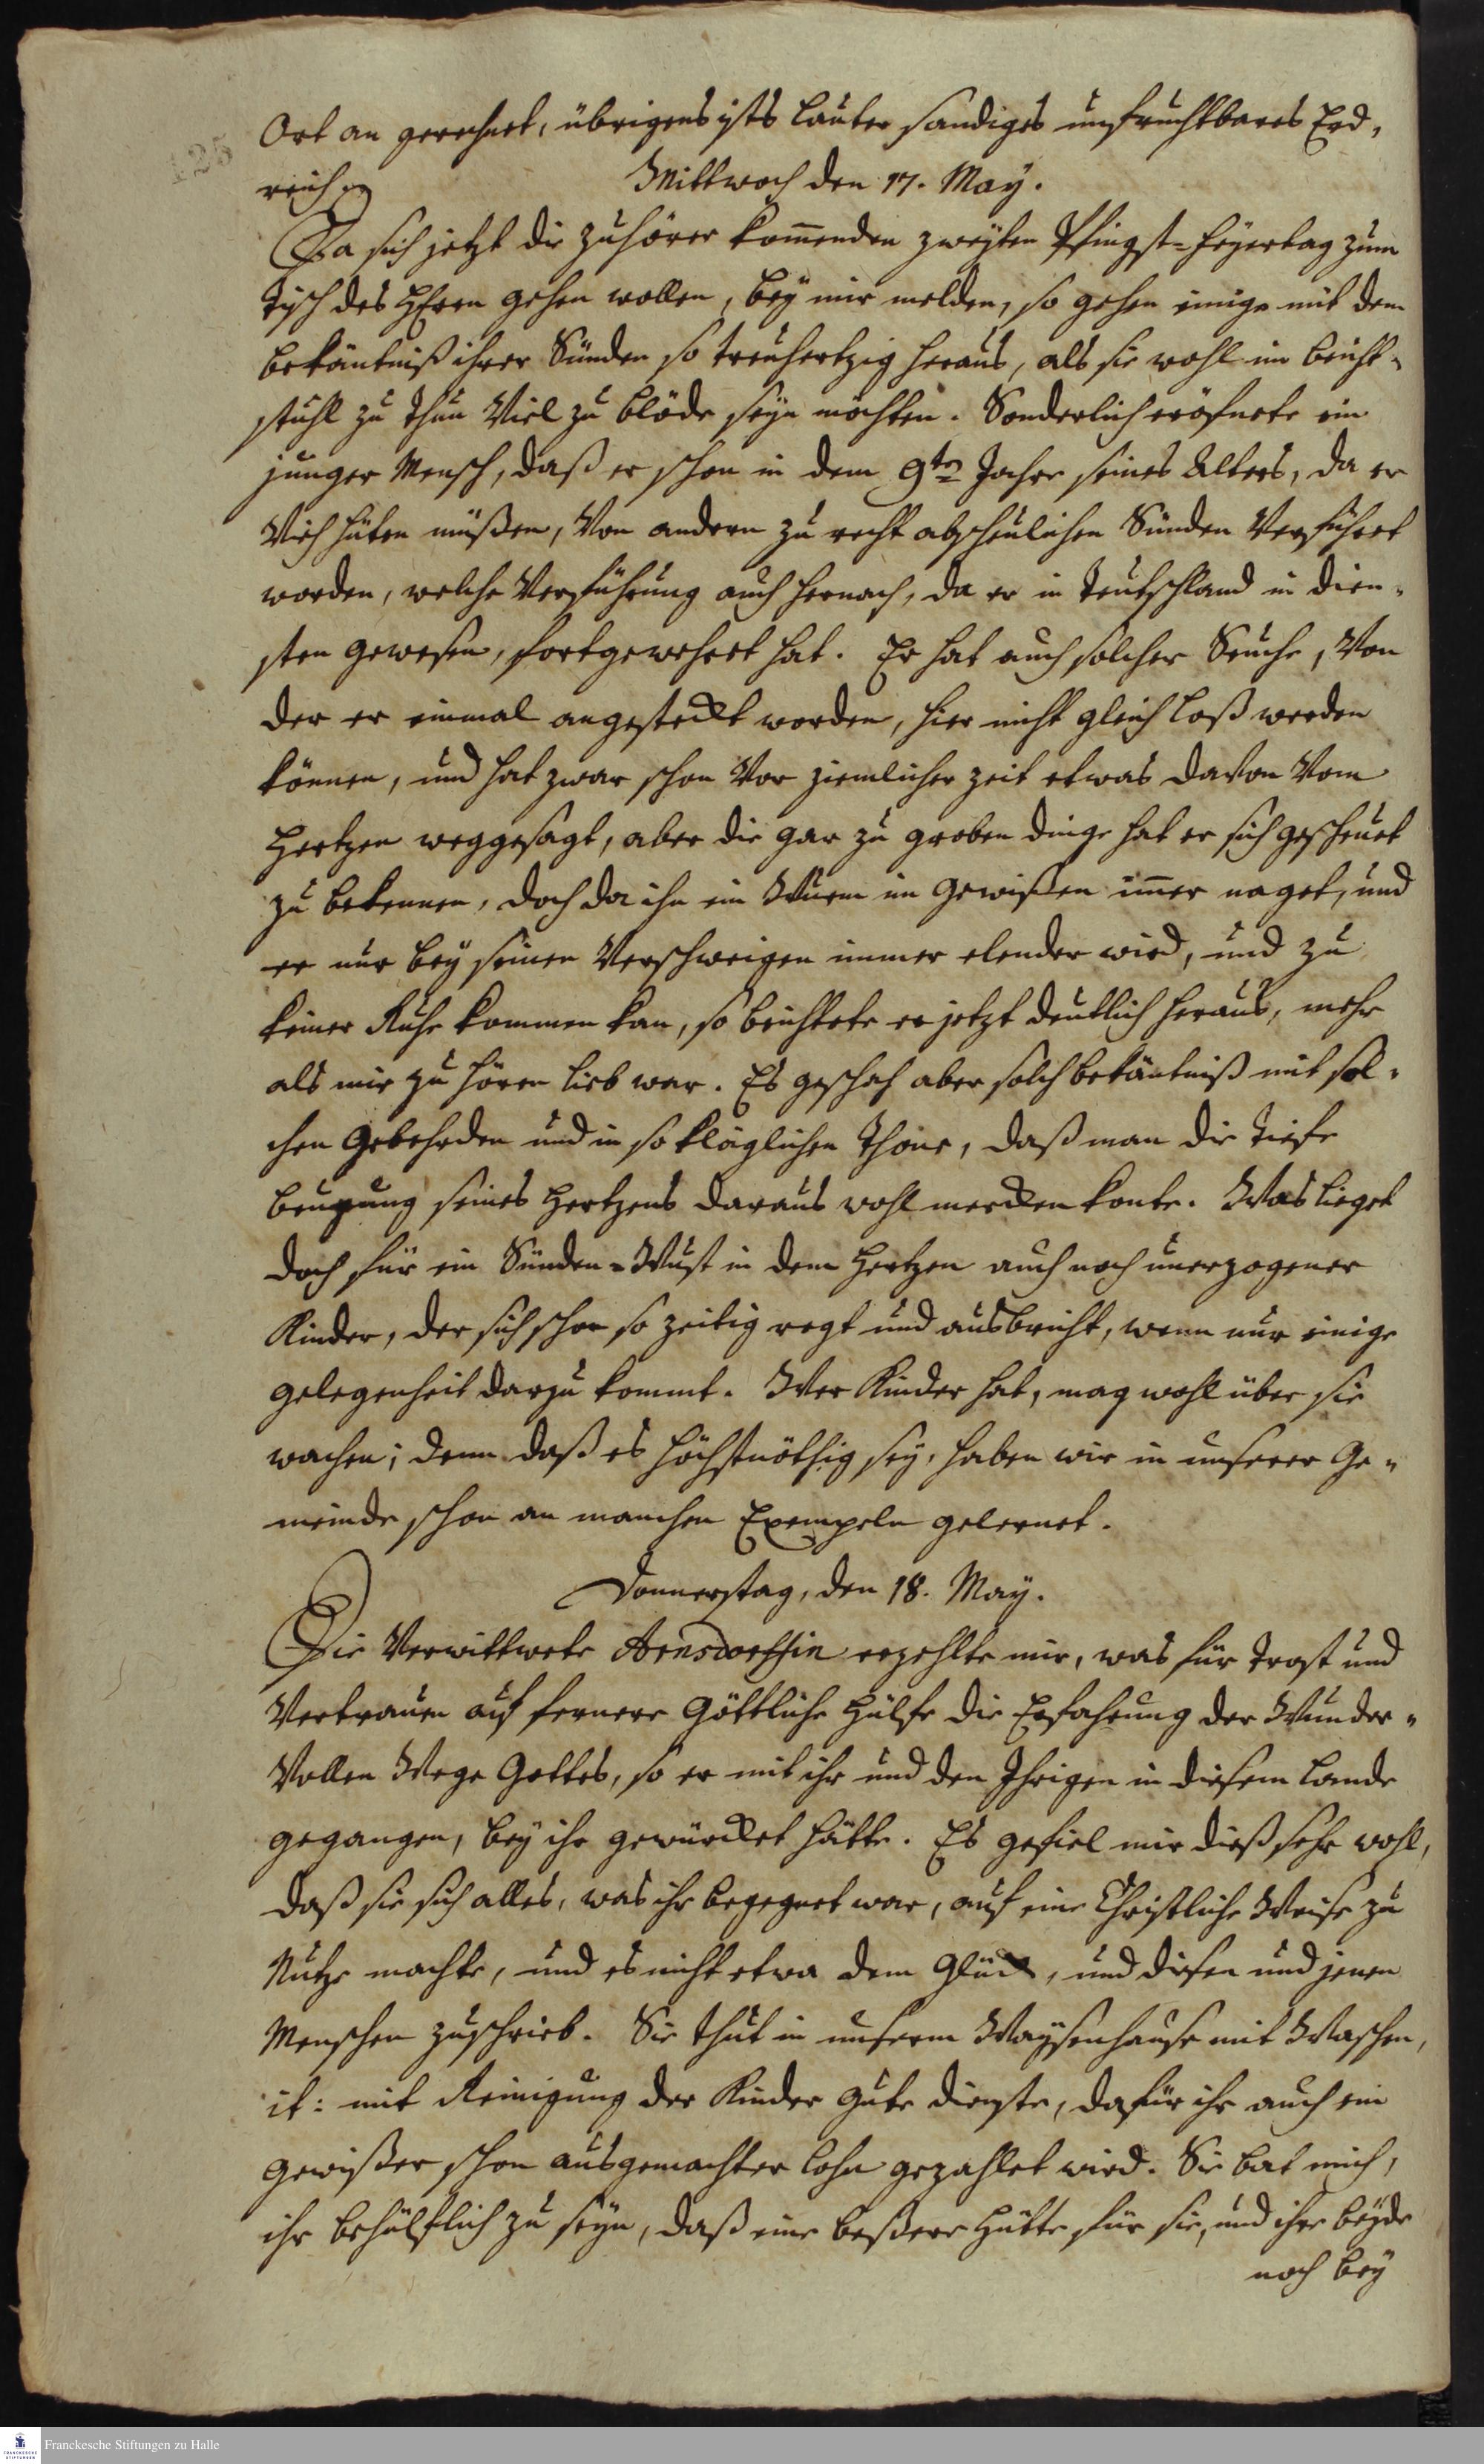 125
Ort an gerechnet, übrigens ists lauter sandiges unfruchtbares Erd,
reich
Mittwoch den 17. May.
Da sich jetzt die Zuhörer kom̄enden zweyten Pfingst-Feyertag zum
Tisch des HErrn gehen wollen, bey mir melden, so gehen einige mit dem
bekäntniß ihrer Sünden so treuhertzig heraus, als sie wohl im beicht-
stuhl zu thun Viel zu blöde seyn möchten. Sonderlich eröfnete ein
junger Mensch, daß er schon in dem 9ten Jahre seines Alters, da er
Vieh hüten müßen, Von andern zu recht abscheulichen Sünden Verführet
worden, welche Verführung auch hernach, da er in Teutschland in dien-
sten gewesen, fortgewehret hat. Er hat auch solcher Seuche, Von
der er einmal angesteckt worden, hier nicht gleich loß werden
können, und hat zwar schon Vor ziemlicher zeit etwas davon Vom
Hertzen weggesagt, aber die gar zu groben dinge hat er sich gescheuet
zu bekennen, doch da ihn ein Wurm im Gewißen im̄er naget, und
er nur bey seinen Verschweigen immer elender wird, und zu
keiner Ruhe kommen kan, so beichtete er jetzt deutlich heraus, mehr
als mir zu hören lieb war. Es geschah aber solch bekäntniß mit sol-
chen Gebehrden und in so kläglichen Thone, daß man die Tiefe
beugung seines Hertzens daraus wohl mercken konte. Was lieget
doch für ein Sünden-Wust in dem Hertzen auch noch unerzogener
Kinder, der sich schon so zeitig regt und ausbricht, wenn nur einige
gelegenheit darzu kommt. Wer Kinder hat, mag wohl über sie
wachen; denn daß es höchstnöthig sey, haben wir in unserer Ge-
meinde schon an manchen Exempeln gelernet.
Donnerstag, den 18. May.
Die Verwittwete Arnsdorffin erzehlte mir, was für Trost und
Vertrauen auf fernere Göttliche Hülfe die Erfahrung der Wunder-
Vollen Wege Gottes, so er mit ihr und den Ihrigen in diesem Lande
gegangen, bey ihr gewürcket hätte. Es gefiel mir dieß sehr wohl,
daß sie sich alles, was ihr begegnet war, auf eine Christliche Weise zu
Nutze machte, und es nicht etwa dem Glück, und diesen und jenen
Menschen zuschrieb. Sie thut in unserm Waysenhause mit Waschen,
it: mit Reinigung der Kinder gute dienste, dafür ihr auch ein
gewißer schon ausgemachter Lohn gezahlet wird. Sie bat mich,
ihr behülflich zu seyn, daß eine beßere Hütte für sie, und ihre beyde
noch bey
Franckesche Stiftungen zu Halle